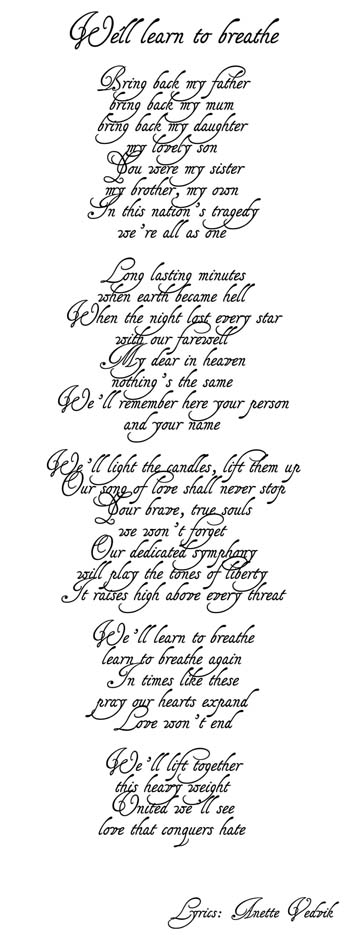 We'll learn to breathe
Bring back my father
bring back my mum
bring back my daughter
my lovely son
You were my sister
my brother, my own
In this nation's tragedy
we're all as one
Long lasting minutes
when earth became hell
When the night lost every star
with our farewell
My dear in heaven
nothing's the same
We'll remember here your person
and your name
We'll light the candles, lift them up
Our song of love shall never stop
Your brave, true souls
we won't forget
Our dedicated symphony
will play the tones of liberty
It raises high above every threat
We'll learn to breathe
learn to breathe again
In times like these
pray our hearts expand
Love won't end
We'll lift together
this heavy weight
United we'll see
love that conquers hate
Lyrics: Anette Vedvik